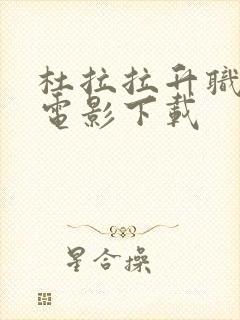 杜拉拉升職
電影下載
星合操